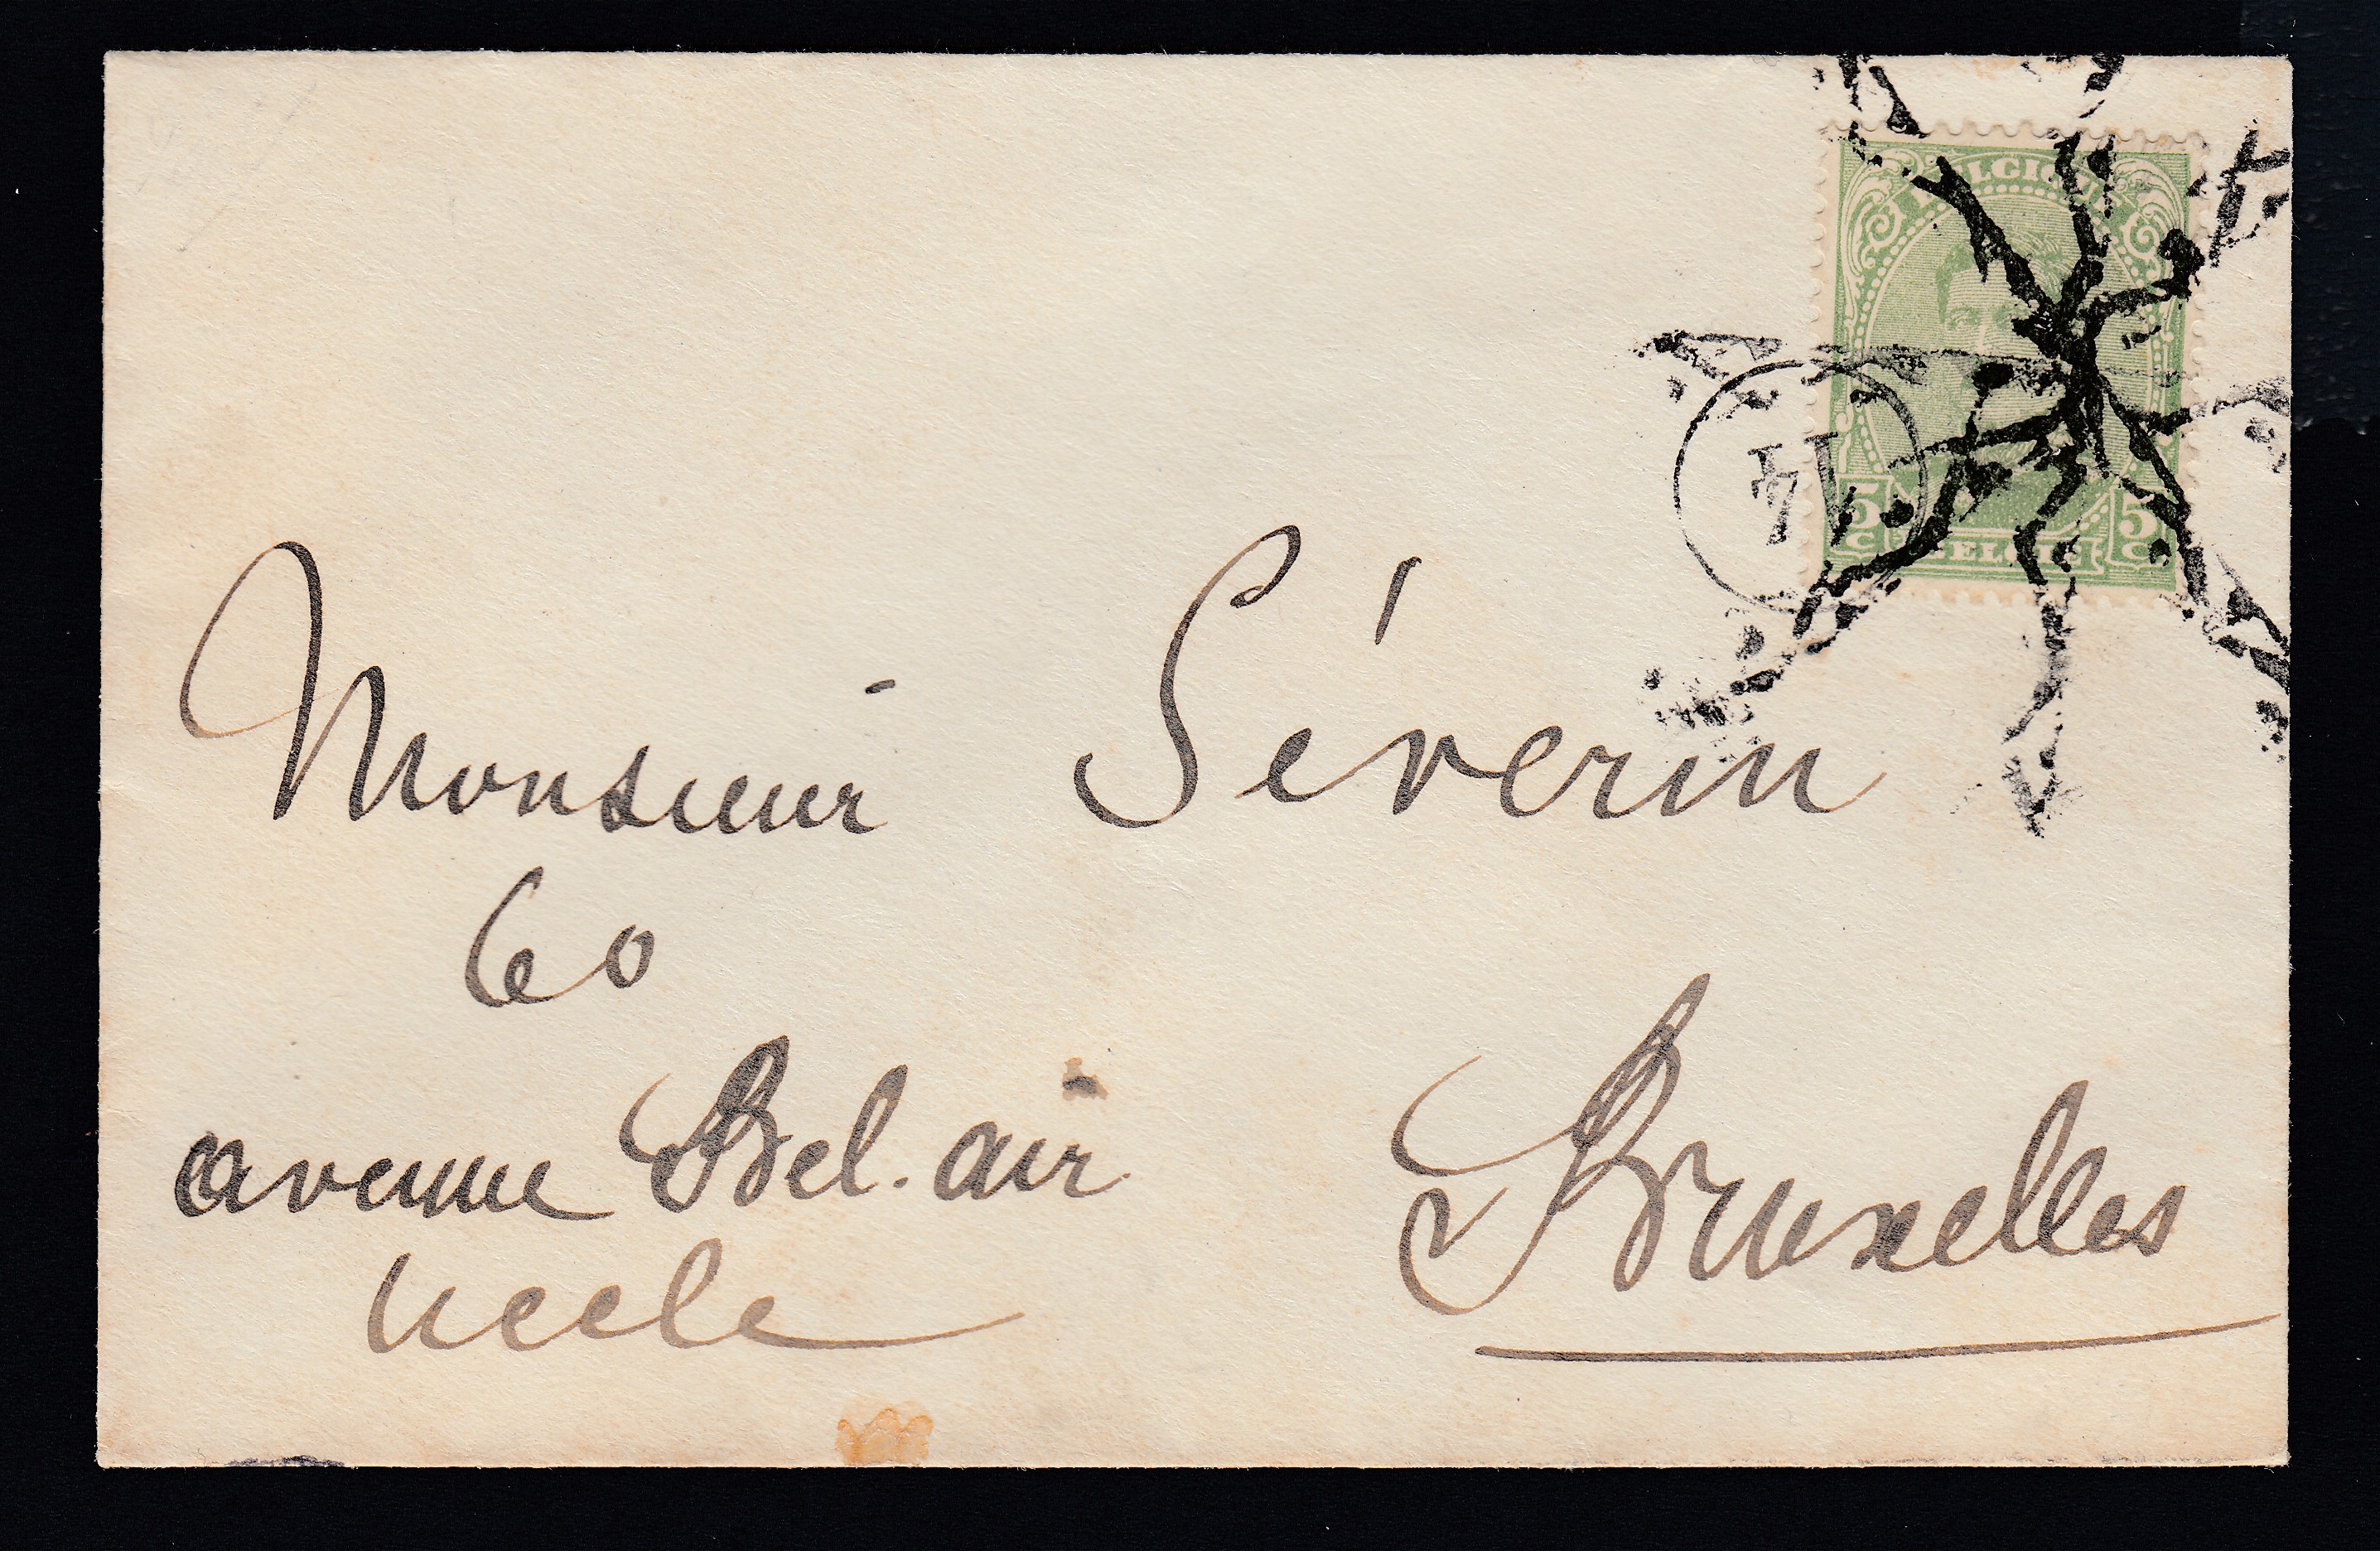 BELGIQUE
5 C
5 C
BELGIË
Monsieur Séverin
60
avenue Bel-air
Uccle
Bruxelles